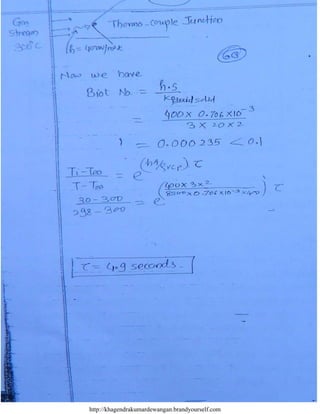 Gas
Stream
300°C
Thermo-couple Junction
h = 400 w/m²K
68
Now we have
Biot No. = h.s / K solid
= 400 x 0.706 x10⁻³ / 3 x 20 x 2
= 0.000235 < 0.1
Ti - T∞ / T - T∞ = e^( ) τ
30 - 300 / 298 - 300 = e^(400 x 3 x 2 / x 0.706 x 10⁻³ x 400) τ
τ = 4.9 seconds.
http://khagendrakumardewangan.brandyourself.com